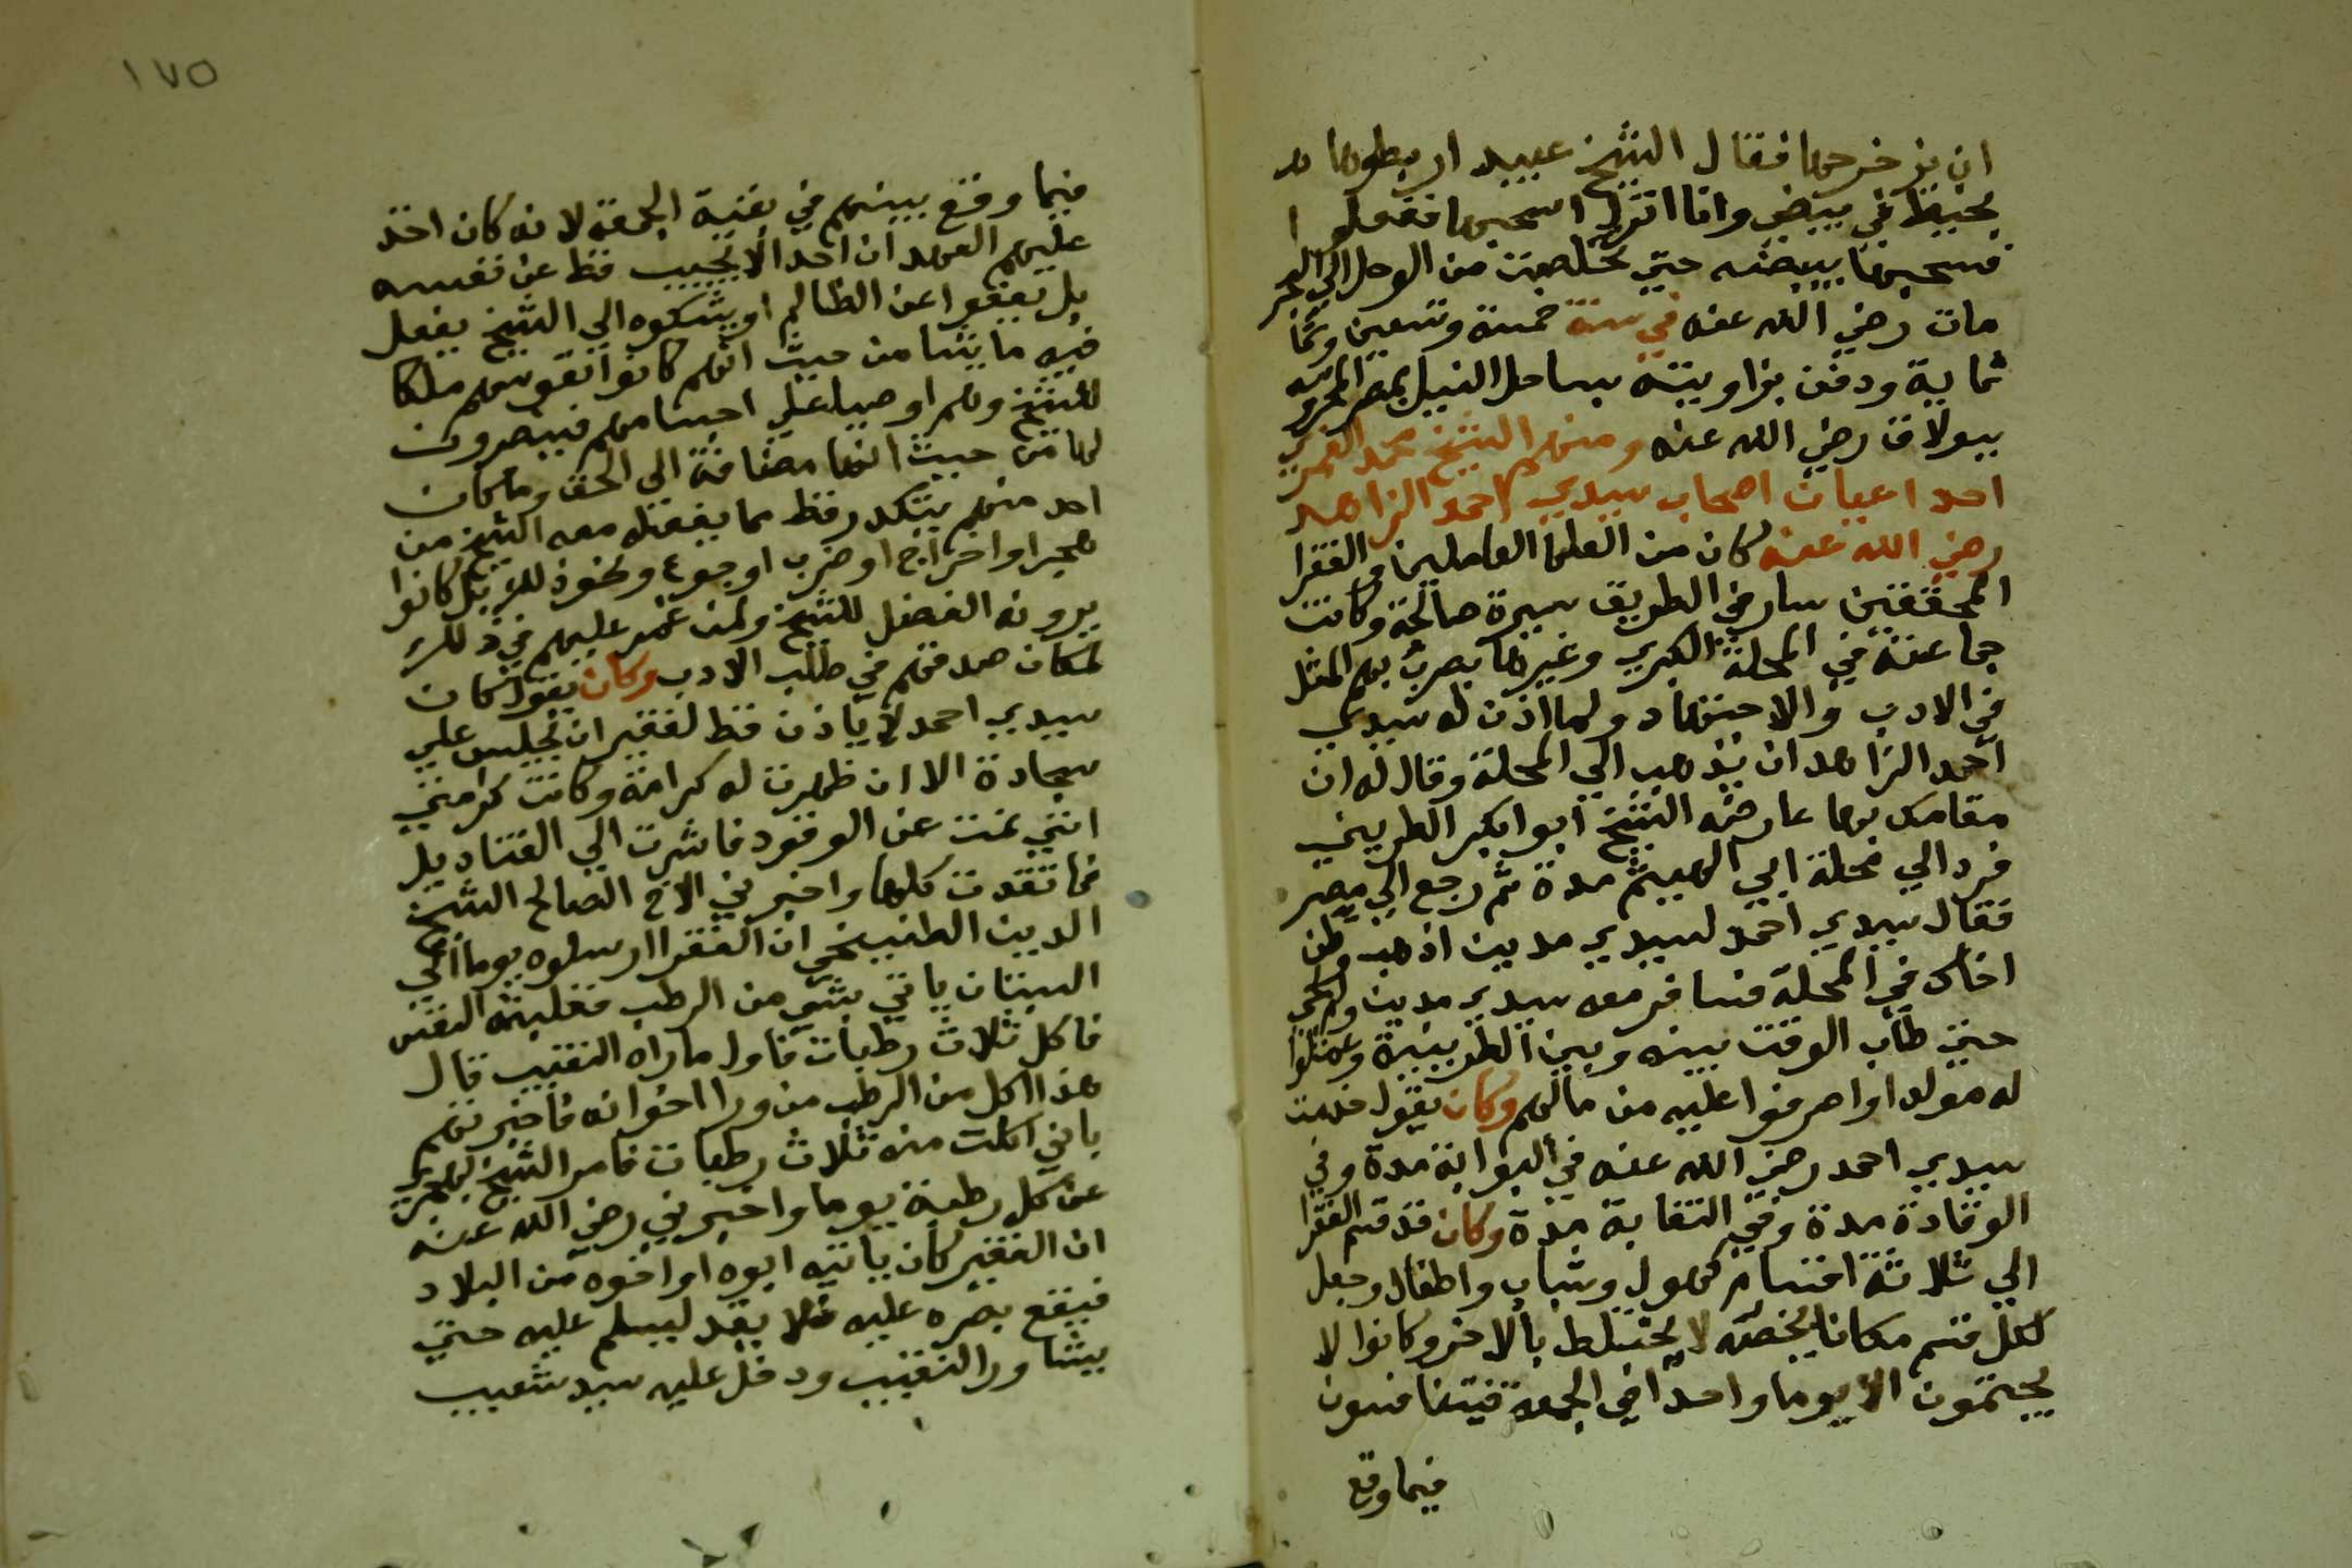 ان يزحزحها فقال الشيخ عبيد اربطوها
بخيط في بيضي وانا انزل اسحبها ففعلوا
فسحبها ببيضه حتي تخلصت من الوحل الي البحر
مات رضي الله عنه في سنة خمسة وتسعين وثما
ثماية ودفن بزاويته بساحل النيل بمصر المحروسه
ببولاق رضي الله عنه ومنهم الشيخ محمد الغمري
احد اعيان اصحاب سيدي احمد الزاهد
رضي الله عنه كان من العلما العاملين والفقرا
المحققين سار في الطريق سيرة صالحة وكانت
جماعته في المحلة الكبري وغيرها يضرب بهم المثل
في الادب والاجتهاد ولما اذن له سيدي
احمد الزاهد ان يذهب الي المحلة وقال له ان
مقامك بها عارضه الشيخ ابوابكر الطريني
فرد الي محلة ابي الهيثم مدة ثم رجع الي مصر
فقال سيدي احمد لسيدي مدين اذهب وطن
اخاك في المحلة فسافر معه سيدي مدين
حتي طاب الوقت بينه وبين الطرينية وعملوا
له مولدا واصرفوا عليه من مالهم وكان يقول خدمت
سيدي احمد رضي الله عنه في البوابة مدة وفي
الوقادة مدة وفي النقابة مدة وكان قد قسم الفقرا
الي ثلاثة اقسام كهول وشباب واطفال وجعل
لكل قسم مكانا يخصه لا يختلط بالاخر وكانوا لا
يجتمون الا يوما واحدا في الجمعة فيتنافسون
فيما وقع
١٧٥
فيما وقع بينهم في بقية الجمعة لانه كان اخذ
عليهم العهد ان احدا لا يجيب قط عن نفسه
بل يعفوا عن الظالم او يشكوه الي الشيخ يفعل
فيه ما يشا من حيث انهم كانوا نفوسهم ملكا
للشيخ وهم اوصيا علي اجسامهم فينصرون
لها من حيث انها مضافة الي الحق وما كان
احد منهم يتكدر قط مما يفعله معه الشيخ من
هجر او اخراج او ضرب او جوع ونحو ذلك بل كانوا
يرونه الفضل للشيخ ولمن غمر عليهم في ذلك
لمكان صدقهم في طلب الادب وكان يقول كان
سيدي احمد لا ياذن قط لفقير ان يجلس علي
سجادة الا ان ظهرت له كرامة وكانت كرامتي
انني نمت عن الوقود فاشرت الي القناديل
فاتقدت كلها واخبرني الاخ الصالح الشيخ
الدين الطنيخي ان الفقرا ارسلوه يوما الي
البستان ياتي بشي من الرطب فغلبته النفس
فاكل ثلاث رطبات فاول ما راه النقيب قال
هذا اكل من الرطب من ورا اخوانه فاخبرتهم
باني اكلت منه ثلاث رطبات فامر الشيخ بهجري
عن كل رطبة يوما واخبرني رضي الله عنه
ان الفقير كان ياتيه ابوه او اخوه من البلاد
فيقع بصره عليه فلا يقد ليسلم عليه حتي
يشاور النقيب ودخل عليه سيد شعيب